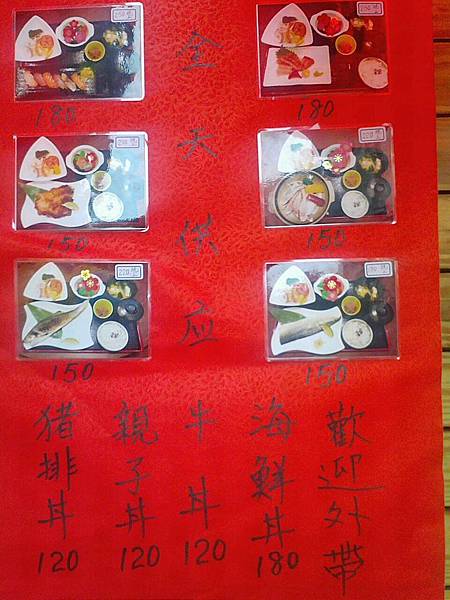 全天供应
180
180
150
150
150
150
歡迎外帶
海鮮丼 180
牛丼 120
親子丼 120
猪排丼 120